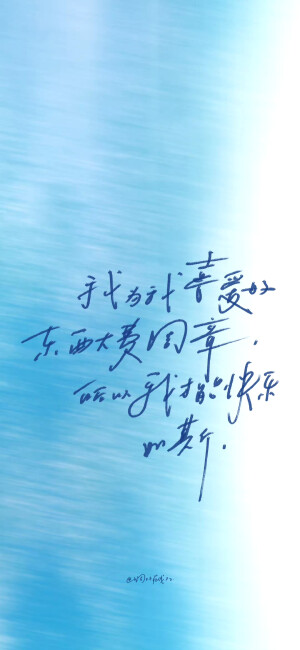 我为我喜爱的
东西大费周章，
所以我才能快乐
如斯。